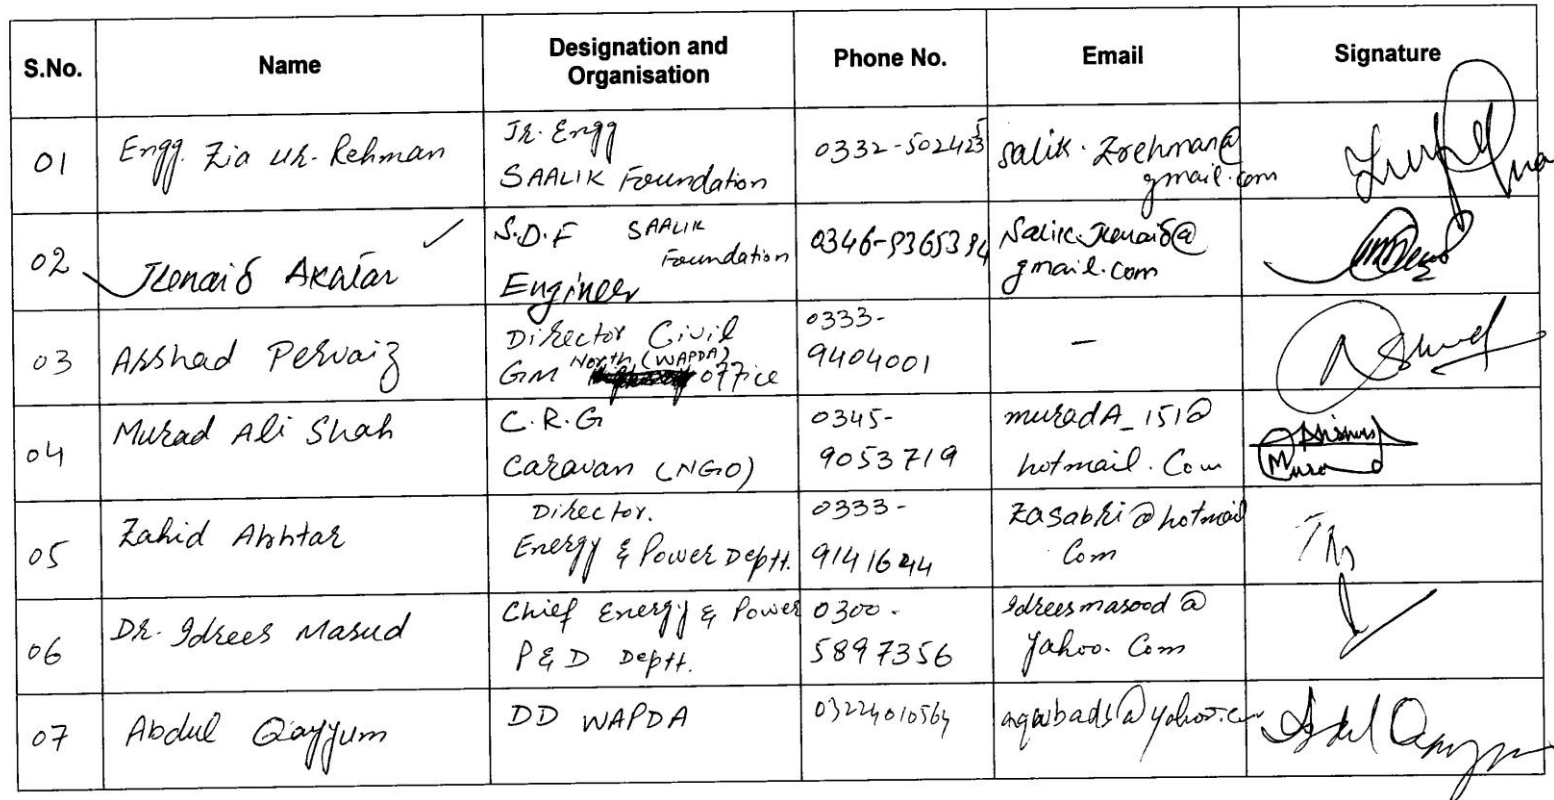 S.No. Name Designation and Organisation Phone No. Email Signature
01 Engg. Zia ur. Rehman Jr. Engg SAALIK Foundation 0332-502425 salik.zrehman@gmail.com
02 Junaid Akhtar S.D.F SAALIK Foundation Engineer 0346-9365394 Salik.Junaid@gmail.com
03 Arshad Pervaiz Director Civil GM North (WAPDA) office 0333-9404001 –
04 Murad Ali Shah C.R.G Caravan (NGO) 0345-9053719 muradA_151@hotmail.Com
05 Zahid Akhtar Director. Energy & Power Deptt. 0333-9141644 zasabri@hotmail Com
06 Dr. Idrees Masud Chief Energy & Power P&D Deptt. 0300-5897356 Idreesmasood@yahoo.Com
07 Abdul Qayyum DD WAPDA 03224010564